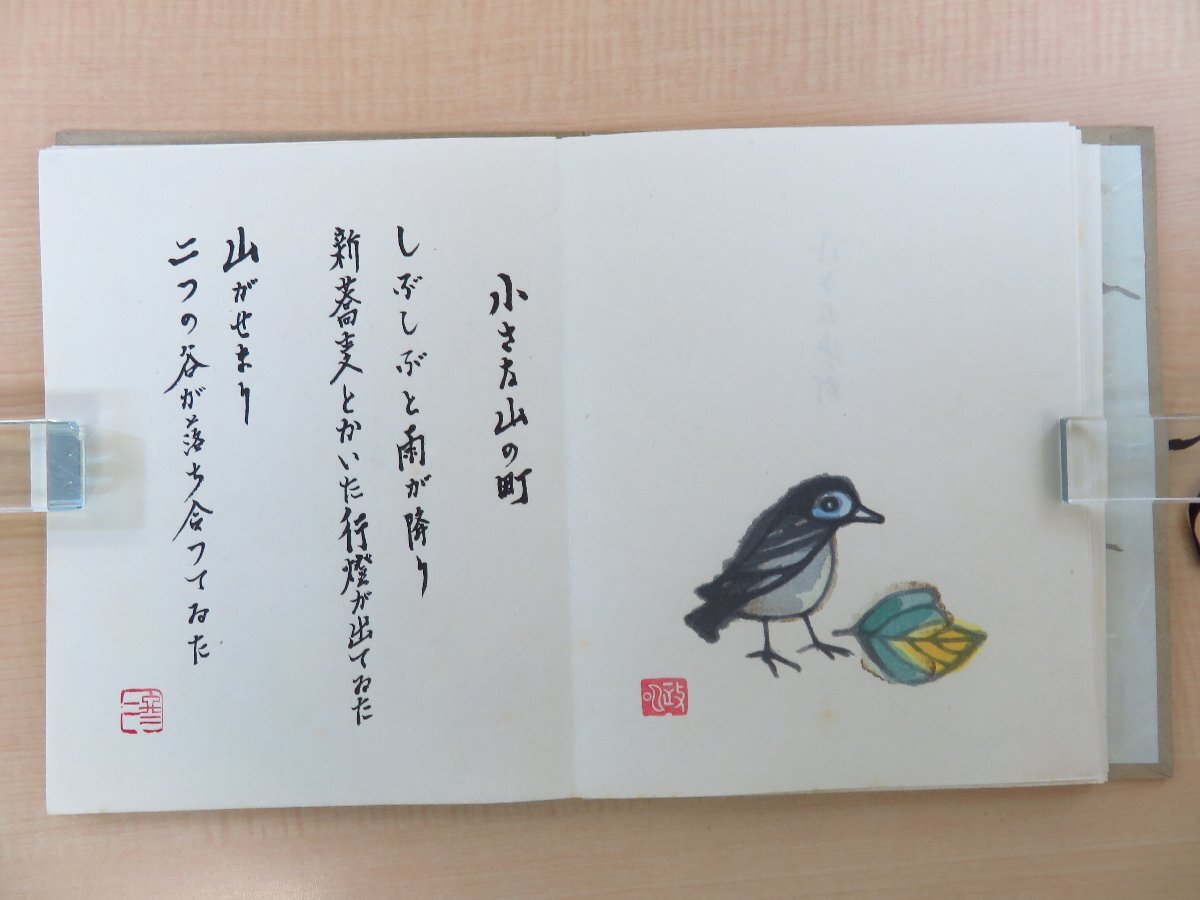 小さな山の町
しぶしぶと雨が降り
新蕎麦とかいた行燈が出てゐた
山がせまり
二つの谷が落ち合つてゐた